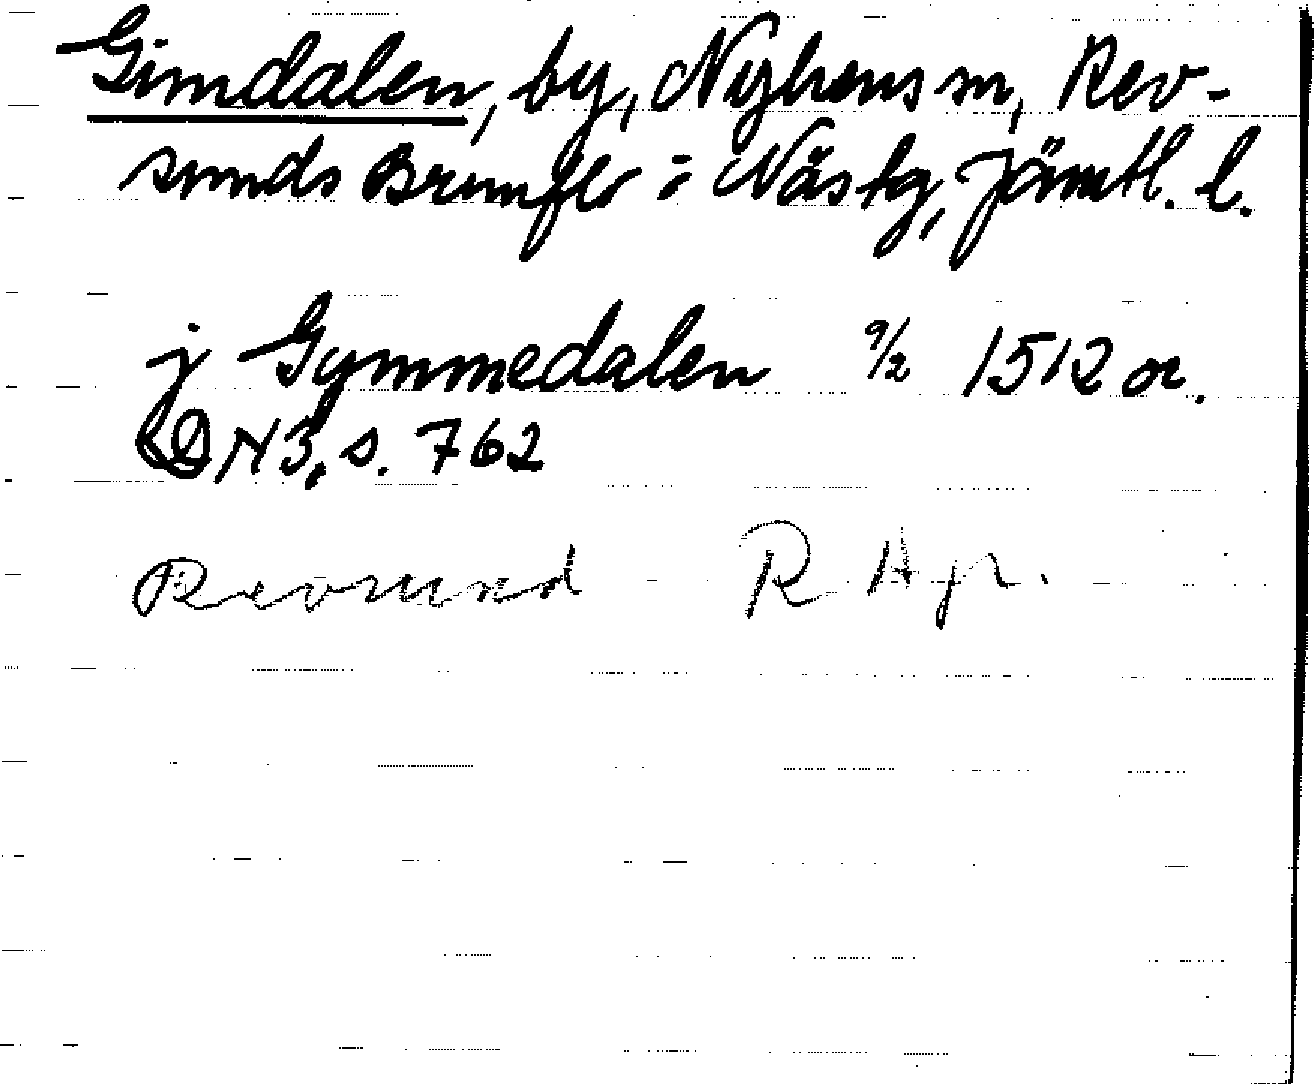 Gimdalen, by, Nyhems sn, Rev-
sunds Brunflo i Näs tg, Jämtl. l.
j Gymmedalen 9/2 1512 or.
DN 3, s. 762
Revsund R